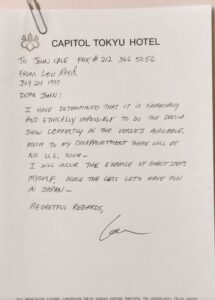 CAPITOL TOKYU HOTEL
TO JOHN CALE FAX # 212 366 5056
FROM LOU REED
JULY 24 1990
DEAR JOHN:
I HAVE DETERMINED THAT IT IS FINANCIALLY
AND ETHICALLY IMPOSSIBLE TO DO THE DRELLA
SHOW CORRECTLY IN THE VENUES AVAILABLE.
MUCH TO MY DISAPPOINTMENT THERE WILL BE
NO U.S. TOUR —
I WILL INCUR THE EXPENSE OF
MYSELF, NONE THE LESS LETS HAVE FUN
IN JAPAN —
REGRETFUL REGARDS,
Lou